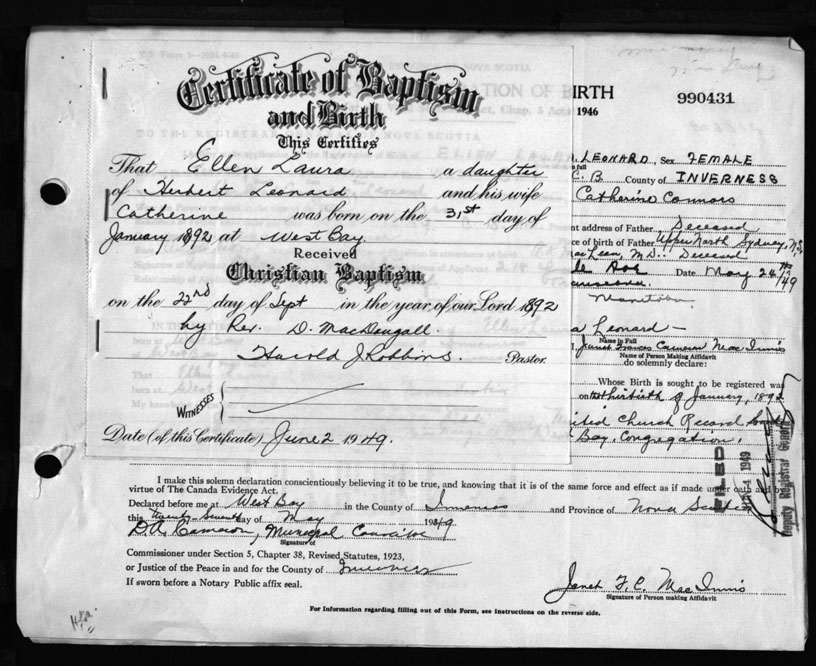 Certificate of Baptism
and Birth
This Certifies
That Ellen Laura a daughter
of Herbert Leonard and his wife
Catherine was born on the 31st day of
January 1892 at West Bay.
Received
Christian Baptism
on the 22nd day of Sept in the year of our Lord 1892
by Rev. D. MacDougall.
Harold J Robbins. Pastor.
WITNESSES
Date (of this Certificate) June 2 1949.
BIRTH
1946
990431
LEONARD, Sex FEMALE
C.B. County of INVERNESS
Catherine Connors
nt address of Father Deceased
ce of birth of Father Upper North Sydney, N.S.
MacLean, M.D. Deceased
Date May 24 /49
Transcona
Manitoba
a Leonard
Name in Full
I, Janet Frances Cameron MacInnis
Name of Person Making Affidavit
do solemnly declare:
Whose Birth is sought to be registered was
of January, 1892
United Church Record
Bay, Congregation,
FILED
4 1949
Deputy Registrar General
I make this solemn declaration conscientiously believing it to be true, and knowing that it is of the same force and effect as if made under oath and by
virtue of The Canada Evidence Act.
Declared before me at West Bay in the County of Inverness and Province of Nova Scotia
this twenty seventh day of May 1949
D.A. Cameron, Municipal Councillor
Signature of
Commissioner under Section 5, Chapter 38, Revised Statutes, 1923,
or Justice of the Peace in and for the County of Inverness
If sworn before a Notary Public affix seal.
Janet F. C. MacInnis
Signature of Person making Affidavit
For Information regarding filling out of this Form, see Instructions on the reverse side.